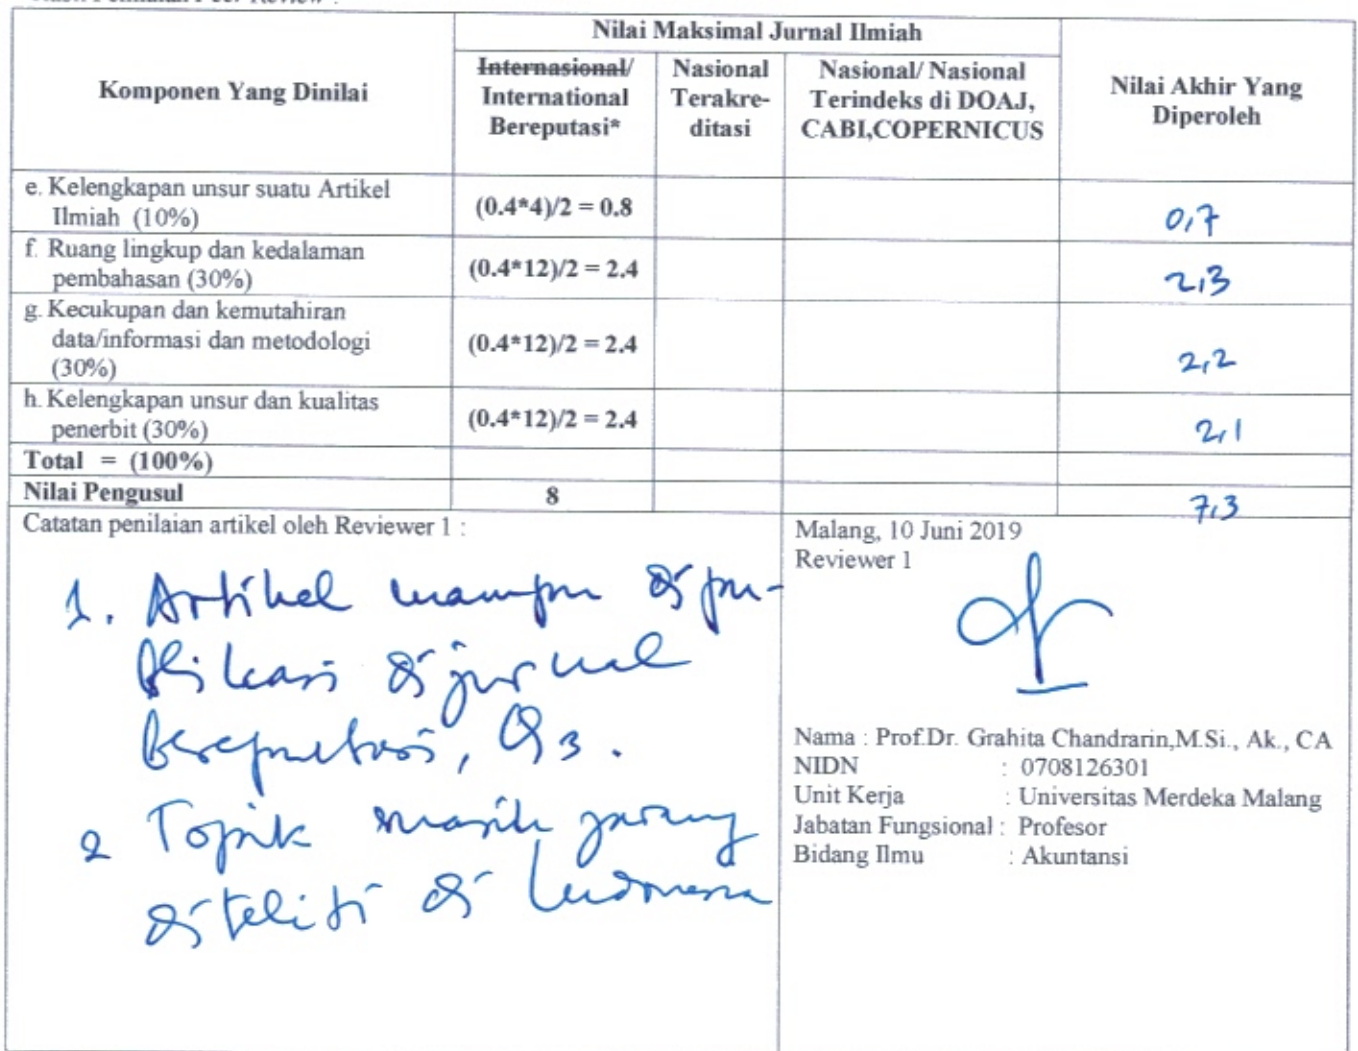 Nilai Maksimal Jurnal Ilmiah
Komponen Yang Dinilai
Internasional/
International
Bereputasi*
Nasional
Terakre-
ditasi
Nasional/ Nasional
Terindeks di DOAJ,
CABI,COPERNICUS
Nilai Akhir Yang
Diperoleh
e. Kelengkapan unsur suatu Artikel
Ilmiah (10%)
(0.4*4)/2 = 0.8
0,7
f. Ruang lingkup dan kedalaman
pembahasan (30%)
(0.4*12)/2 = 2.4
2,3
g. Kecukupan dan kemutahiran
data/informasi dan metodologi
(30%)
(0.4*12)/2 = 2.4
2,2
h. Kelengkapan unsur dan kualitas
penerbit (30%)
(0.4*12)/2 = 2.4
2,1
Total = (100%)
Nilai Pengusul
8
7,3
Catatan penilaian artikel oleh Reviewer 1 :
1. Artikel mampu dipu-
blikasi di jurnal
bereputasi, Q3.
2 Topik masih jarang
diteliti di Indonesia
Malang, 10 Juni 2019
Reviewer 1
Nama : Prof.Dr. Grahita Chandrarin,M.Si., Ak., CA
NIDN : 0708126301
Unit Kerja : Universitas Merdeka Malang
Jabatan Fungsional : Profesor
Bidang Ilmu : Akuntansi